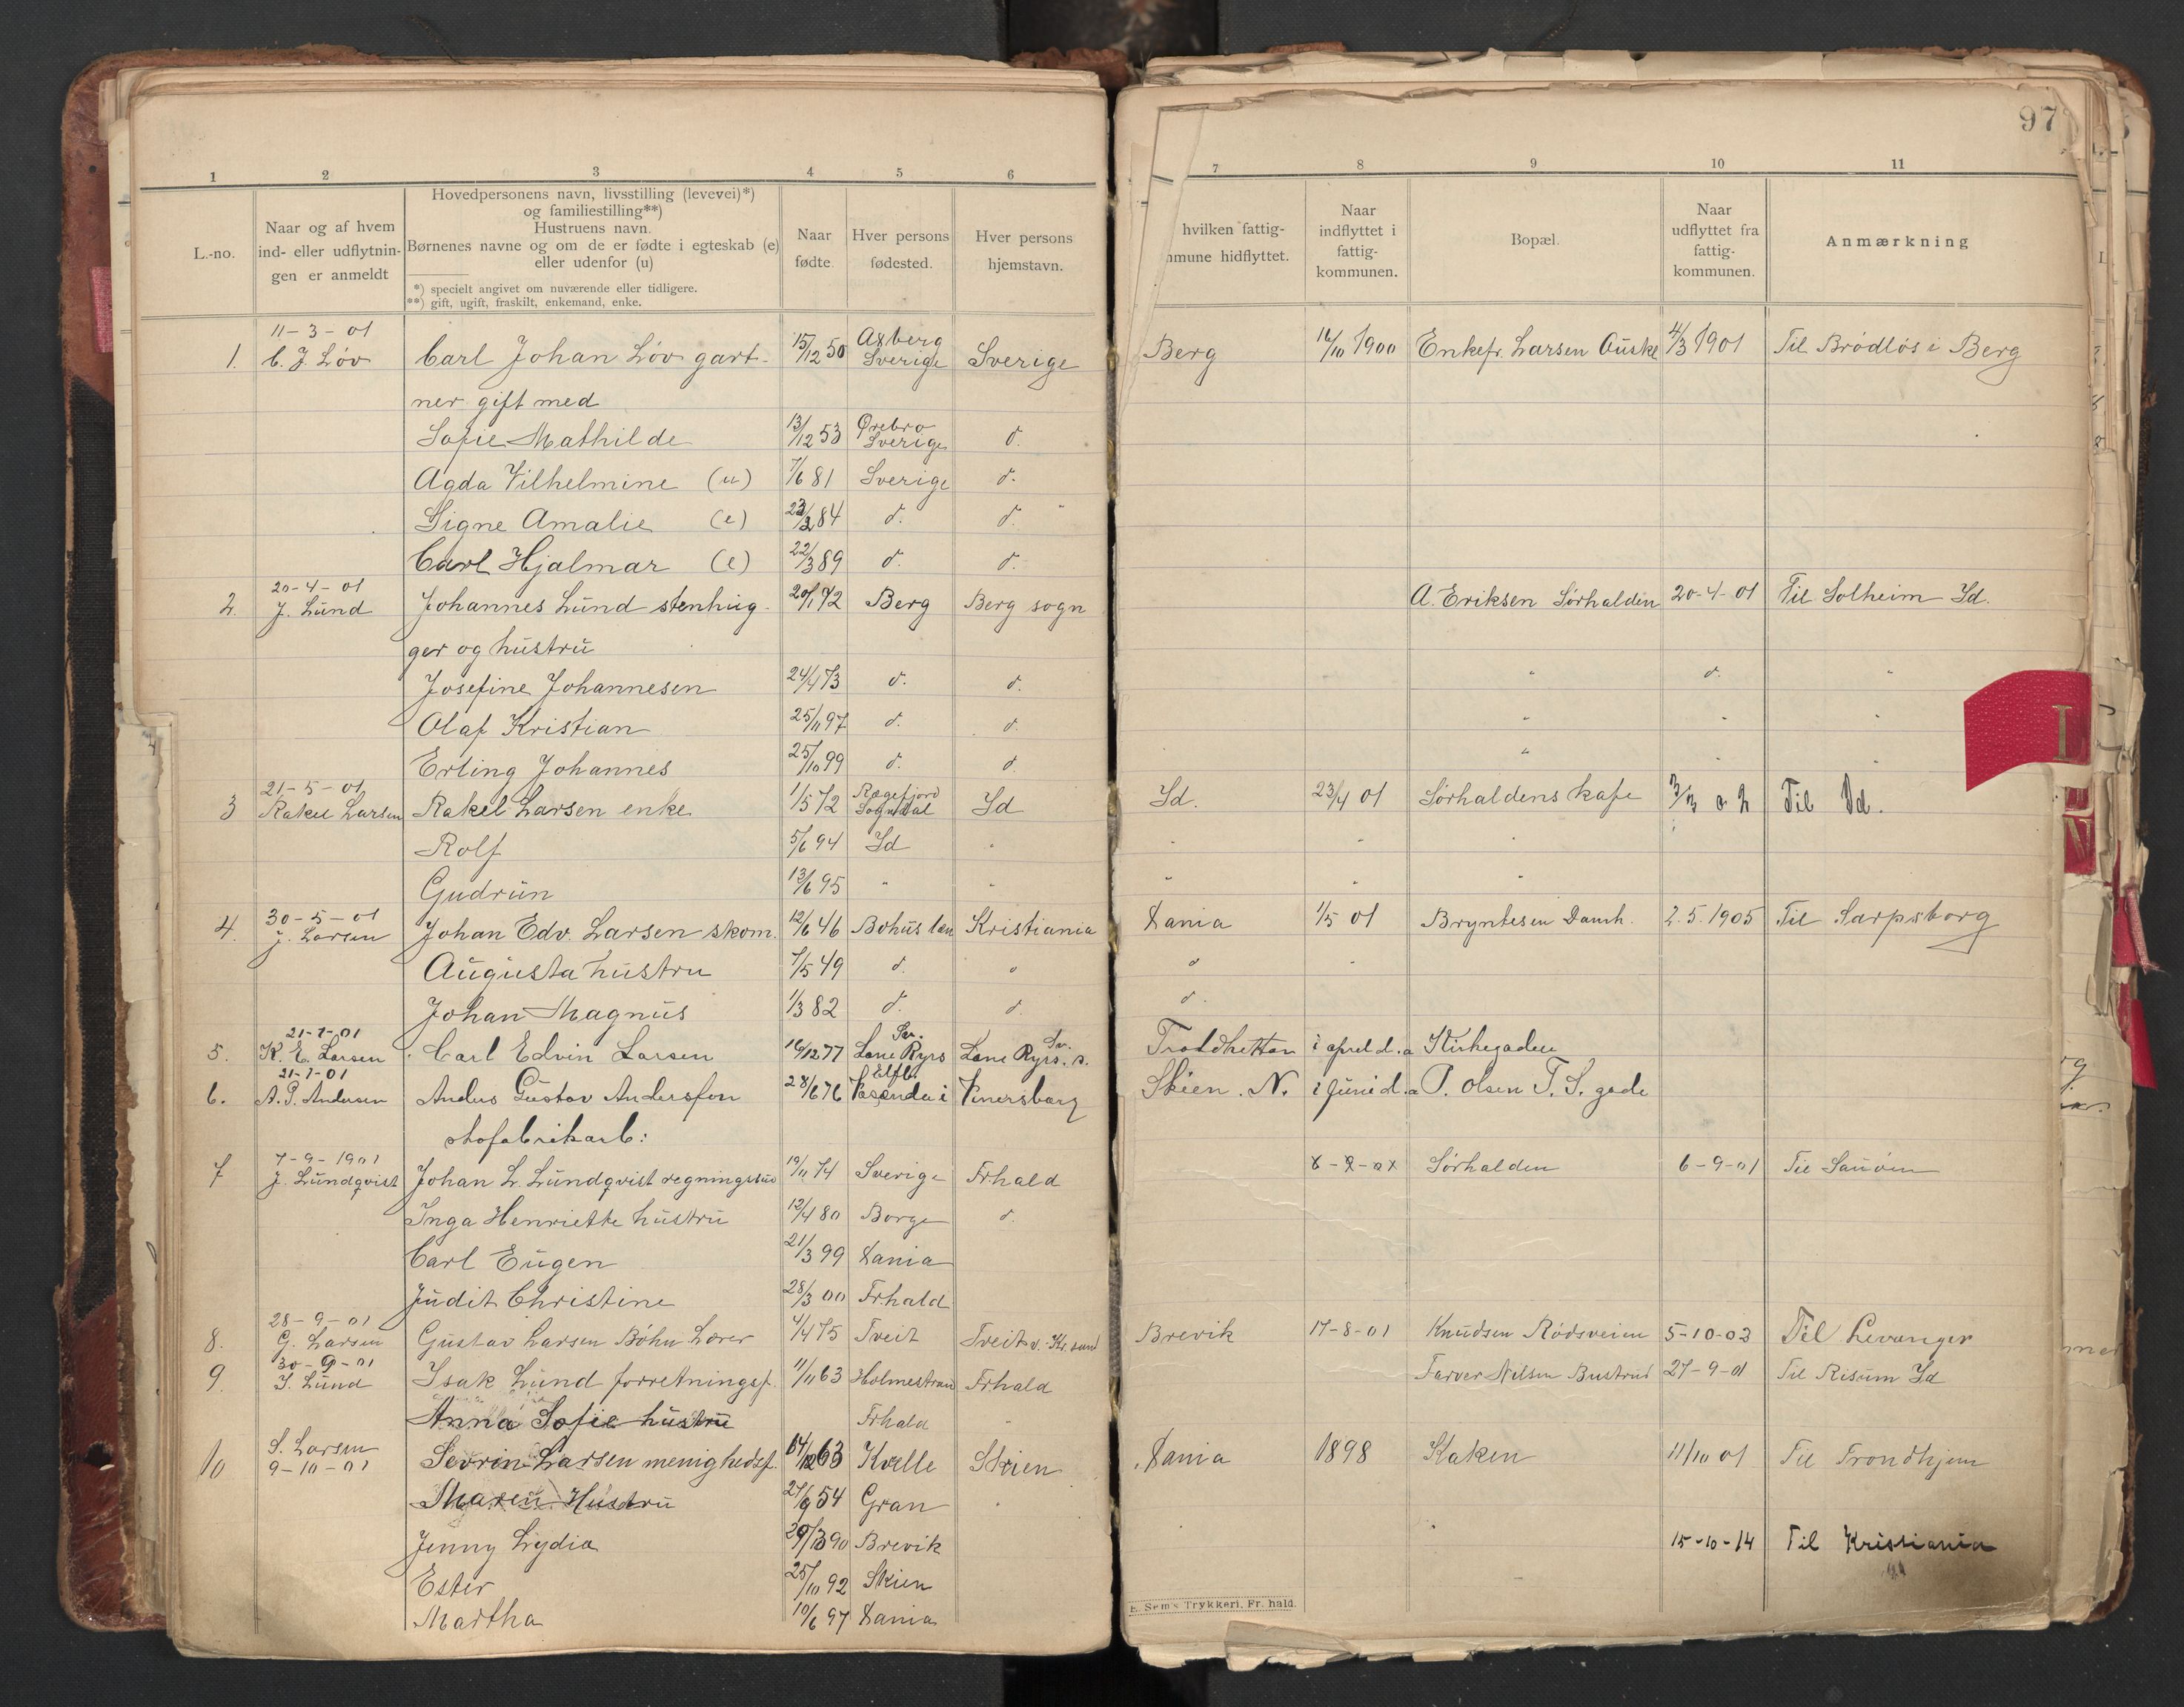 97
1 2 3 4 5 6 7 8 9 10 11
L.-no.
Naar og af hvem
ind- eller udflytnin-
gen er anmeldt
Hovedpersonens navn, livsstilling (levevei)*)
og familiestilling**)
Hustruens navn.
Børnenes navne og om de er fødte i egteskab (e)
eller udenfor (u)
*) specielt angivet om nuværende eller tidligere.
**) gift, ugift, fraskilt, enkemand, enke.
Naar
fødte.
Hver persons
fødested.
Hver persons
hjemstavn.
hvilken fattig-
mmune hidflyttet.
Naar
indflyttet i
fattig-
kommunen.
Bopæl.
Naar
udflyttet fra
fattig-
kommunen.
Anmærkning
11-3-01 Asberg
1. C. J. Løv Carl Johan Løv gart- 15/12 50 Sverige Sverige Berg 16/10 1900 Enkefr. Larsen Øuske 4/3 1901 Til Brödlös i Berg
ner gift med
Ørebro
Sofie Mathilde 13/12 53 Sverige d.
Agda Vilhelmine (u) 7/6 81 Sverige d.
Signe Amalie (e) 84 d. d.
Carl Hjalmar (e) 22/3 89 d. d.
20-4-01
2. J. Lund Johannes Lund stenhug- 20/1 72 Berg Berg sogn A. Eriksen Sørhalden 20-4-01 Til Solheim Id.
ger og hustru
Josefine Johannesen 24/4 73 d. d. " d. "
Olaf Kristian 25/11 97 d. d. " " "
Erling Johannes 25/10 99 d. d. " " "
21-5-01 Rægefjord
3 Rakel Larsen Rakel Larsen enke 1/5 72 Sogndal Id Id. 23/4 01 Sørhaldens kafe Til Id.
Rolf 5/6 94 Id " " " "
Gudrun 13/6 95 " " " " "
30-5-01
4. J. Larsen Johan Edv. Larsen skom. 12/6 46 Bohus læn Kristiania Xania 1/5 01 Bryntesen Damh. 2.5.1905 Til Sarpsborg
Augusta hustru 7/5 49 d. d d "
Johan Magnus 1/3 82 d. d. d.
21-7-01 Sv. Sv.
5. K. E. Larsen Carl Edvin Larsen 16/12 77 Lane Ryrs Lane Ryrs. s. Troldhettan i april d.a Kirkegaden
21-7-01 Elfb.
6. A. G. Andersen Anders Gustav Andersson 28/6 76 i Venersborg Skien. N. i Juni d.a P. Olsen T. S. gade
skofabrikarb:
7-9-1901
7 J. Lundqvist Johan L. Lundqvist 19/11 74 Sverige Frhald Sørhalden 6-9-01 Til Sauøen
Inga Henriette hustru 12/4 80 Borge d.
Carl Eugen 21/3 99 Xania
Judit Christine 28/3 00 Frhald
28-9-01
8. G. Larsen Gustav Larsen Bøhn Lærer 4/4 75 Tveit Tveit v. Kr. sand Brevik 17-8-01 Knudsen Rødsveien 5-10-03 Til Levanger
30-9-01
9. I. Lund Isak Lund forretningsf. 11/11 63 Holmestrand Frhald Farver Nilsen Bustrud 27-9-01 Til Risum Id
Anna Sofie hustru Frhald "
S. Larsen
10 9-10-01 Sevrin Larsen menighedsf. 14/12 63 Kvelle Skien Xania 1898 Kaken 11/10 01 Til Trondhjem
Maren Hustru 27/9 54 Gran
Jenny Lydia 29/3 90 Brevik 15-10-14 Til Kristiania
Ester 25/10 92 Skien
Martha 10/6 97 Xania
E. Sem's Trykkeri, Fr. hald.